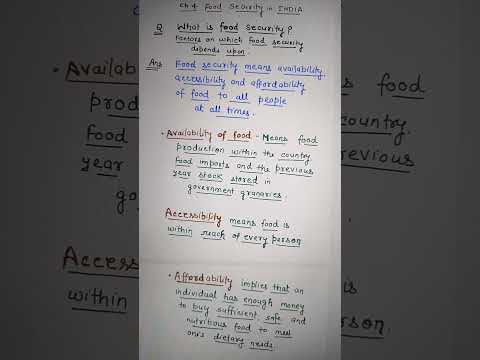 Ch 4 Food Security in INDIA
Q What is food security?
Factors on which food security
depends upon.
Ans Food security means availability,
accessibility and affordability
of food to all people
at all times.
• Availability of food - Means food
production within the country
food imports and the previous
year stock stored in
government granaries.
Accessibility means food is
within reach of every person
• Affordability implies that an
individual has enough money
to buy sufficient, safe and
nutritious food to meet
one's dietary needs.